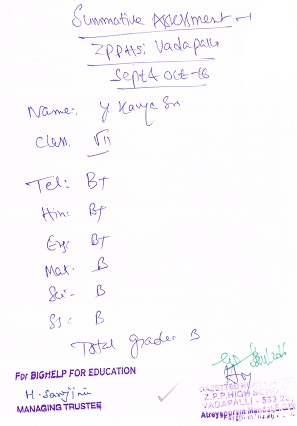 Summative Assessment - 1
ZPPHS: Vadapalli
Sept & Oct-16
Name: Y Kavya Sri
Class: VII
Tel: B+
Hin: B+
Eng: B+
Mat: B
Sci- B
SS: B
Total grade: B
For BIGHELP FOR EDUCATION
H. Sarojini
MANAGING TRUSTEE
GAZETTED
Z.P.P.HIGH
VADAPALLI - 533
Atreyapuram